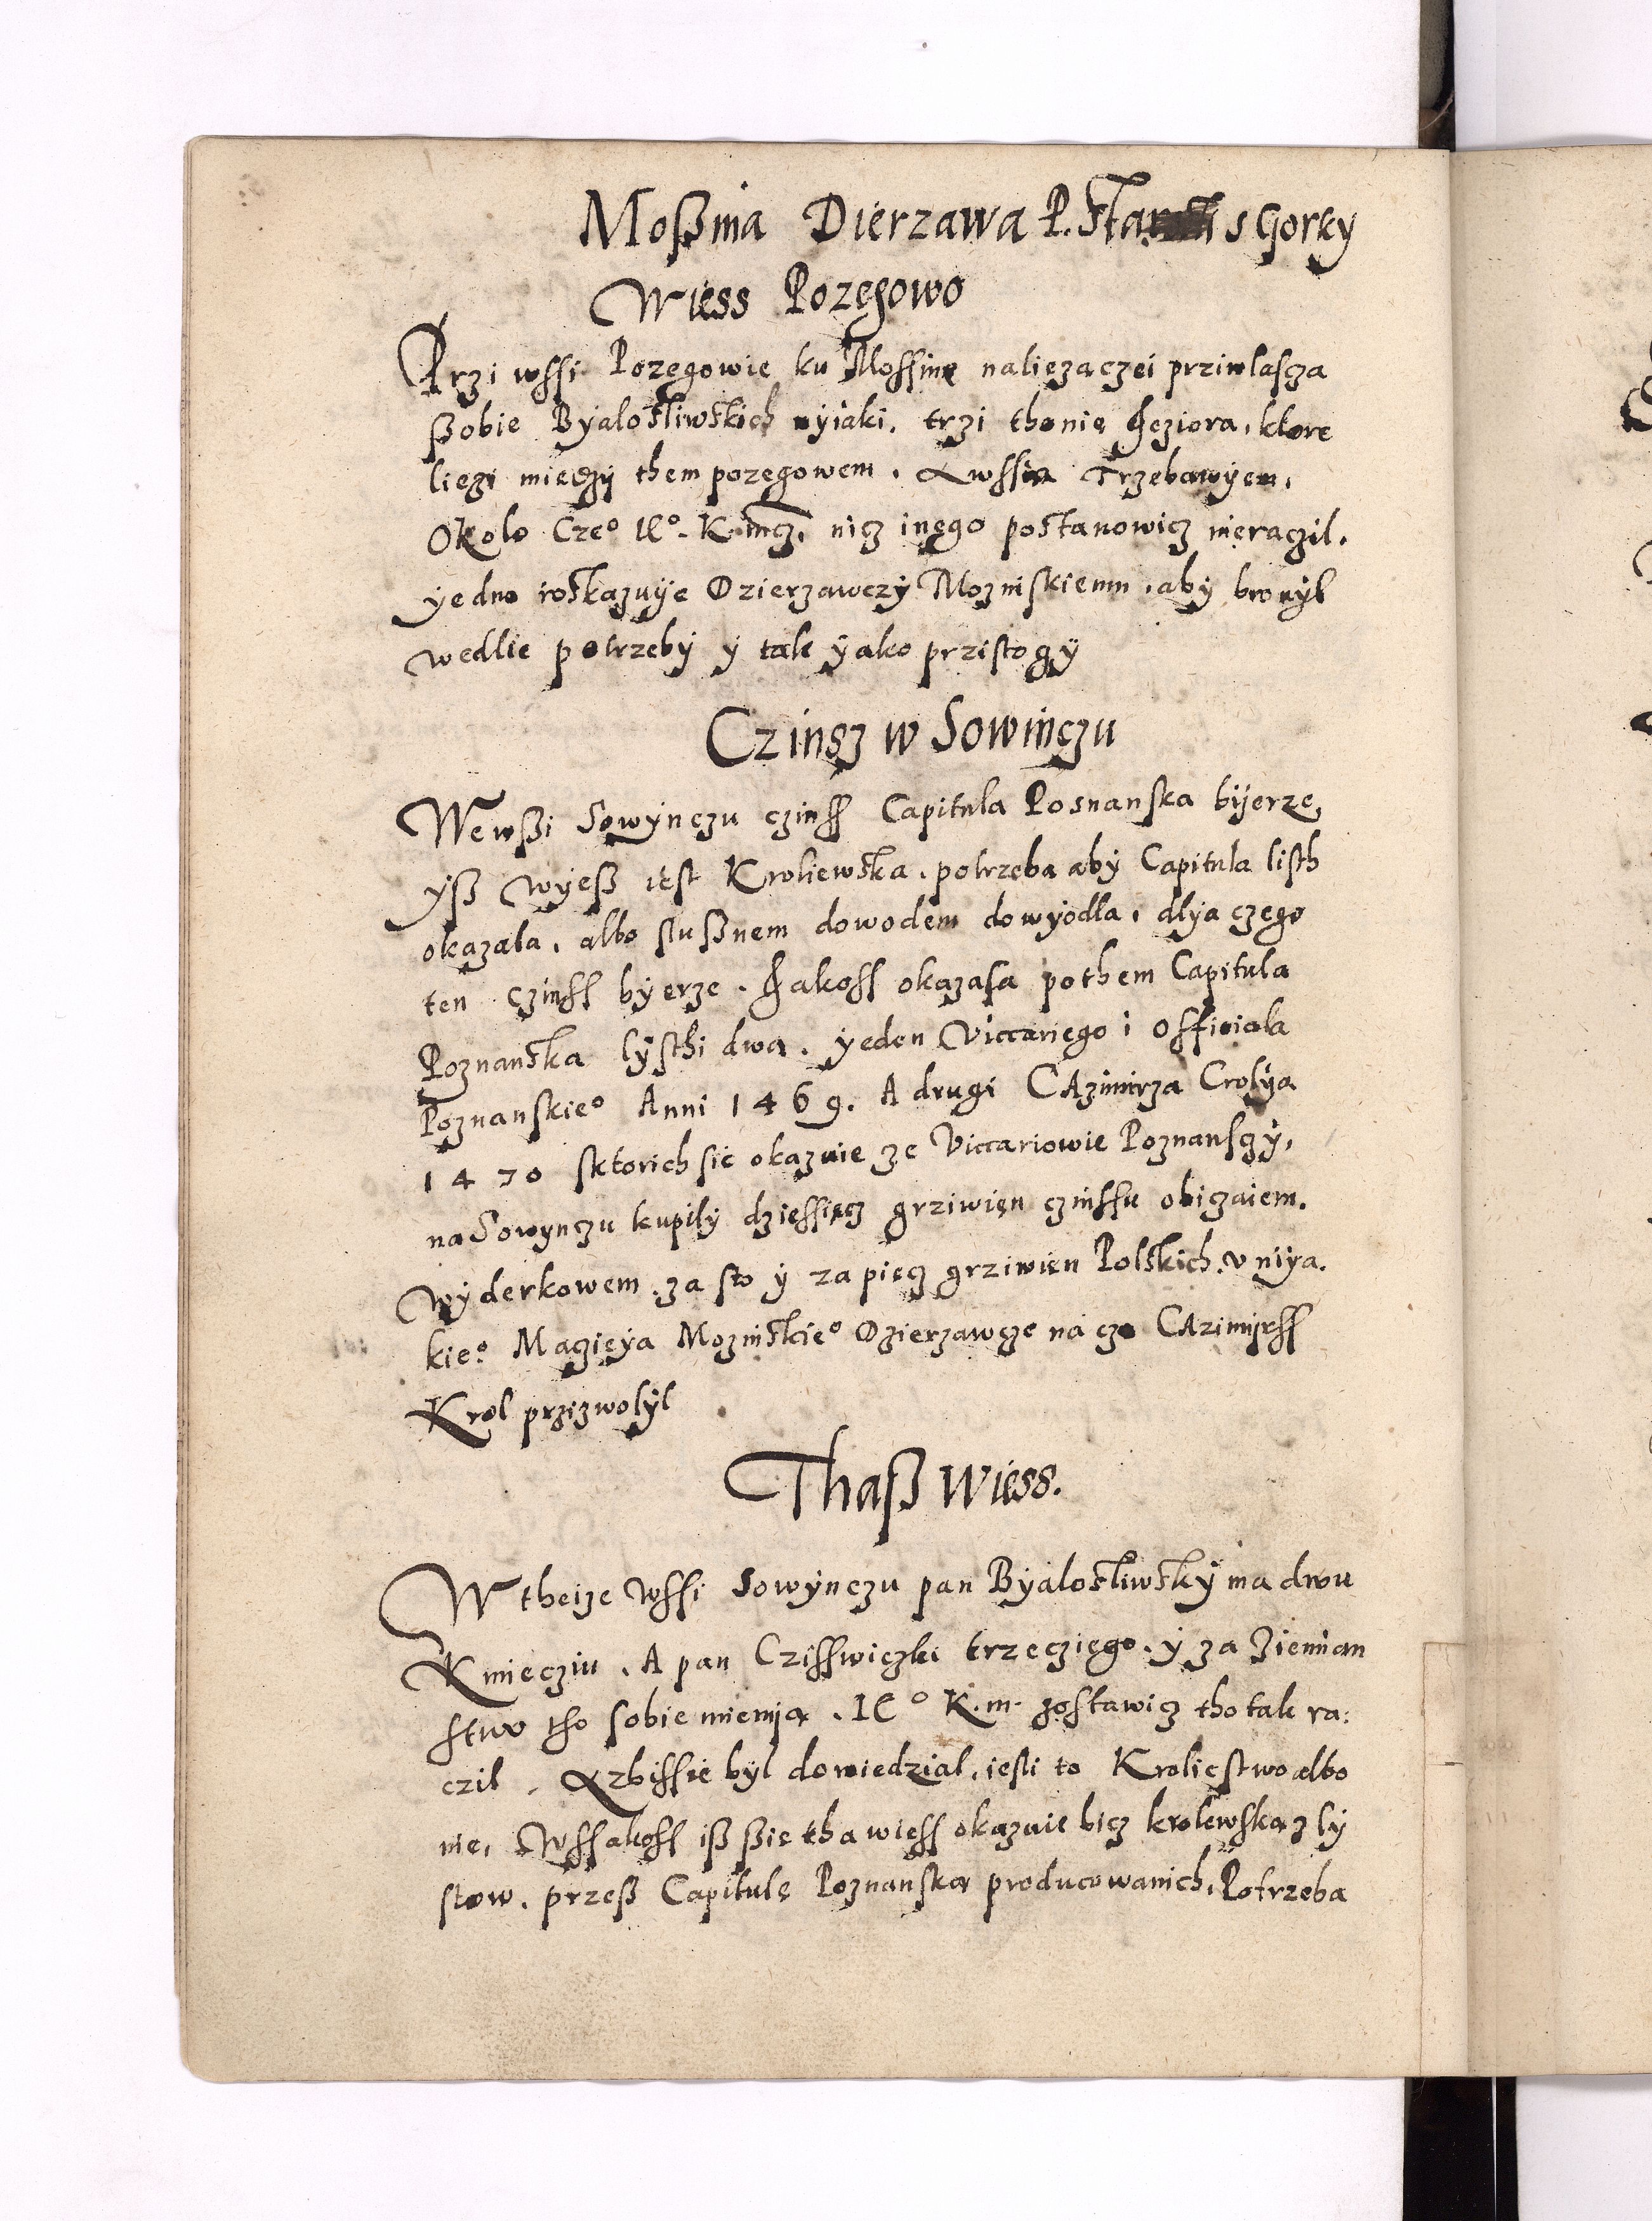 Moßina Dierzawa P. s Gorky
Wiess Pozegowo
Przi wssi Pozegowie ku Mossine naliezaczei przimlascza
ßobie Byalosliwskich nyiaki. trzi thonie Jeziora, ktore
liezi miedzy them pozegowem. A wssia Trzebawyem,
Okolo Cze° IE° K. mcz, nicz inego postanowicz nieraczil.
yedno roskazuye Dzierzawczy Mozniskiemu, aby bronyl
wedlie potrzeby y tak yako przistogy
Czinsz w Sowinczu
We wßi Sowynczu czinss Capitula Posnanska byerze,
yß wyeß iest Kroliewska. potrzeba aby Capitula listh
okazala, albo slußnem dowodem dowyodla, dlya czego
ten czinss byerze. Jakoss okazala pothem Capitula
Poznanska lysthi dwa. yeden Viccariego i Officiala
Poznanskie° Anni 1469. A drugi CAzimirza Crolya
1470 sktorich sie okazuie ze Viccariowie Poznansczy,
na Sowynczu kupily dziessięcz grziwien czinssu obiczaiem.
wyderkowem. za sto y za piecz grziwien Polskich. u niya.
kie° Maczieya Mozniskie° Dzierzawcze na czo CAzimyrss
Krol przizwolyl
Thaß Wiess.
W theize Wssi Sowynczu pan Byalosliwsky ma dwu
Kmiecziu. A pan Czisswiczki trzecziego. y za Ziemian
stwo tho sobie mienią. IE° K. m. zostawicz tho tak ra:
czil. Azbissie byl dowiedzial, iesli to Kroliestwo albo
nie, Wssakoss iß ßie tha wiess okazuie bicz krolewska z ly
stow. przeß Capitule Poznanska producowanich, Potrzeba